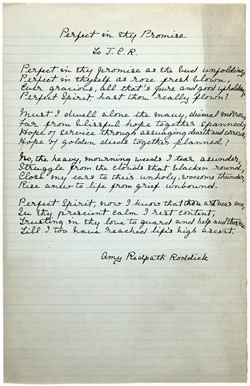 Perfect in thy Promise
To J. C. R.
Perfect in thy promise as the bud unfolding
Perfect in thyself as rose fresh blown,
Ever gracious, all that's pure and good upholding
Perfect Spirit hast thou really flown?
Must I dwell alone the many, dismal
Far from blissful hope together spanned,
Hope of service through assuaging death and
Hope of golden deeds together planned?
No, the heavy, mourning weeds I tear asunder
Struggle from the clouds that blacken round,
Close my ears to their unholy, woesome thunder
Rise anew to life from grief unbound.
Perfect Spirit, now I know that thou art near me
In thy prescient calm I rest content,
Trusting in thy love to guard and help and
Till I too have reached life's high ascent.
Amy Redpath Roddick